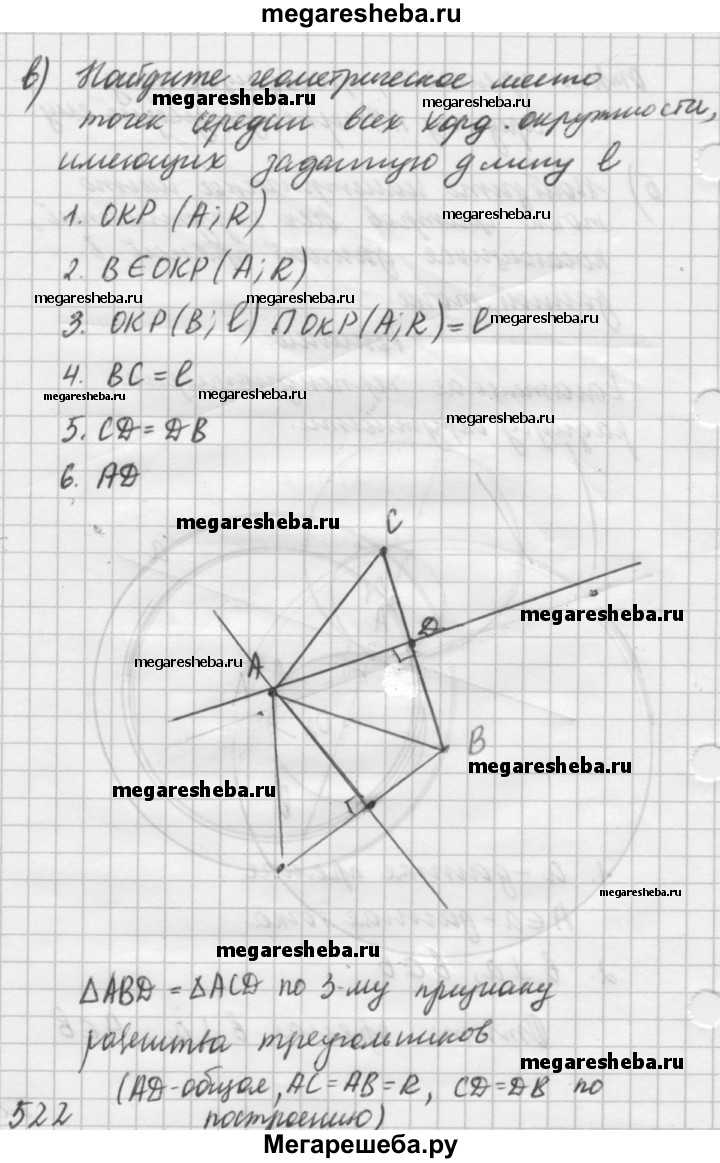 megaresheba.ru
в) Найдите геометрическое место
megaresheba.ru megaresheba.ru
точек середин всех хорд окружности,
имеющих заданную длину l
1. ОКР (A; R)
megaresheba.ru
2. B ∈ ОКР (A; R)
megaresheba.ru megaresheba.ru
3. ОКР (B; l) ∩ ОКР (A; R) = l
megaresheba.ru
4. BC = l
megaresheba.ru
5. CD = DB
megaresheba.ru
6. AD
megaresheba.ru
C
megaresheba.ru
D
A
megaresheba.ru
B
megaresheba.ru
megaresheba.ru
megaresheba.ru
megaresheba.ru
△ABD = △ACD по 3-му признаку
равенства треугольников
megaresheba.ru
(AD-общая, AC = AB = R, CD = DB по
522 построению)
Мегарешеба.ру